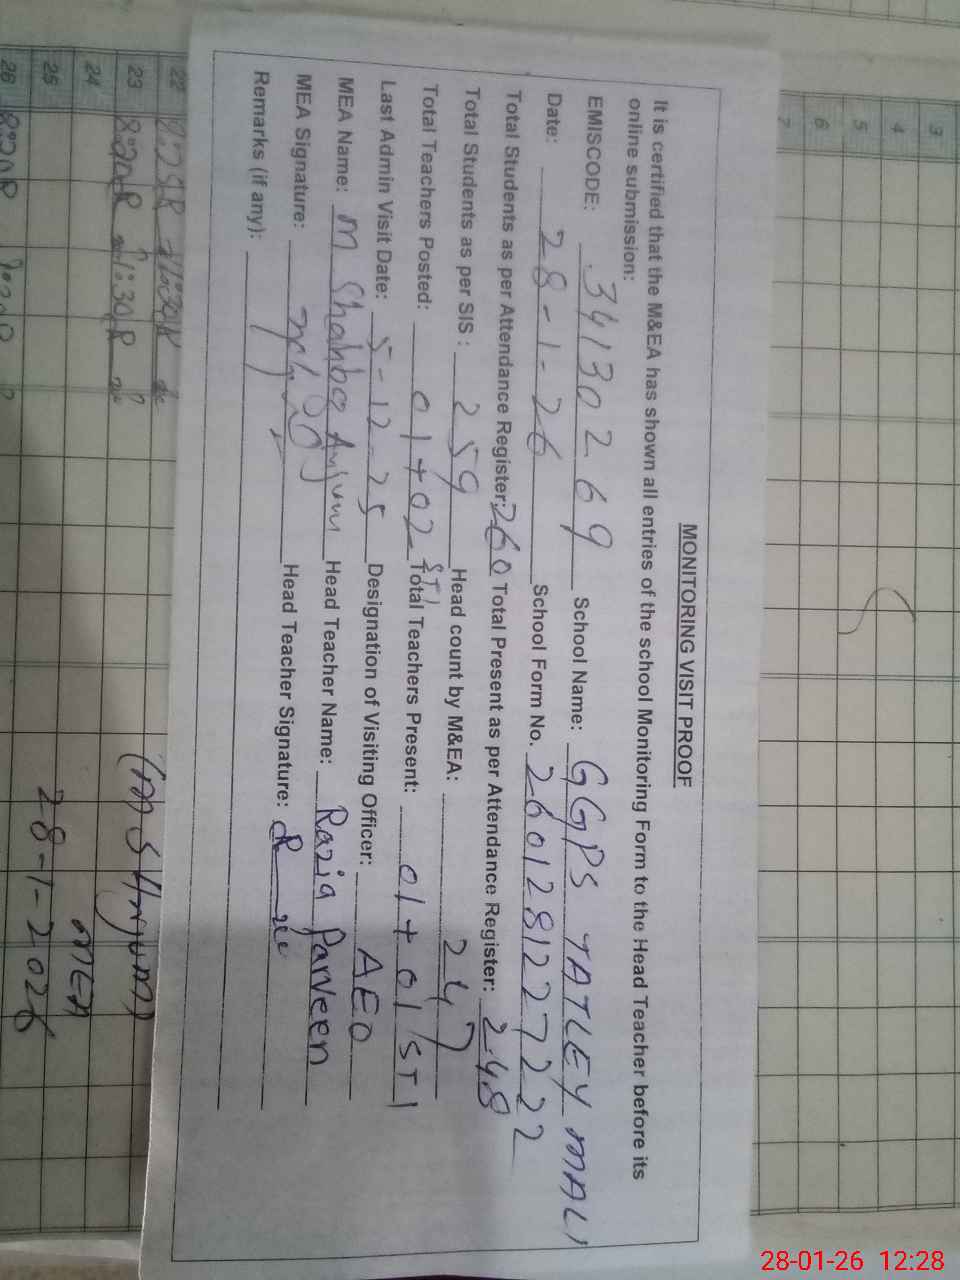 MONITORING VISIT PROOF
It is certified that the M&EA has shown all entries of the school Monitoring Form to the Head Teacher before its
online submission:
EMISCODE: 34130269 School Name: GGPS TATLEY MALI
Date: 28-1-26 School Form No. 2601281227222
Total Students as per Attendance Register: 260 Total Present as per Attendance Register: 248
Total Students as per SIS : 259 Head count by M&EA: 247
Total Teachers Posted: 01+02 STI Total Teachers Present: 01+01 STI
Last Admin Visit Date: 5-12-25 Designation of Visiting Officer: AEO
MEA Name: M Shahbaz Anjum Head Teacher Name: Razia Parveen
MEA Signature: Head Teacher Signature:
Remarks (if any):
(M S Anjum)
MEA
28-1-2026
3
4
5
6
7
22
23
24
25
26
28-01-26 12:28